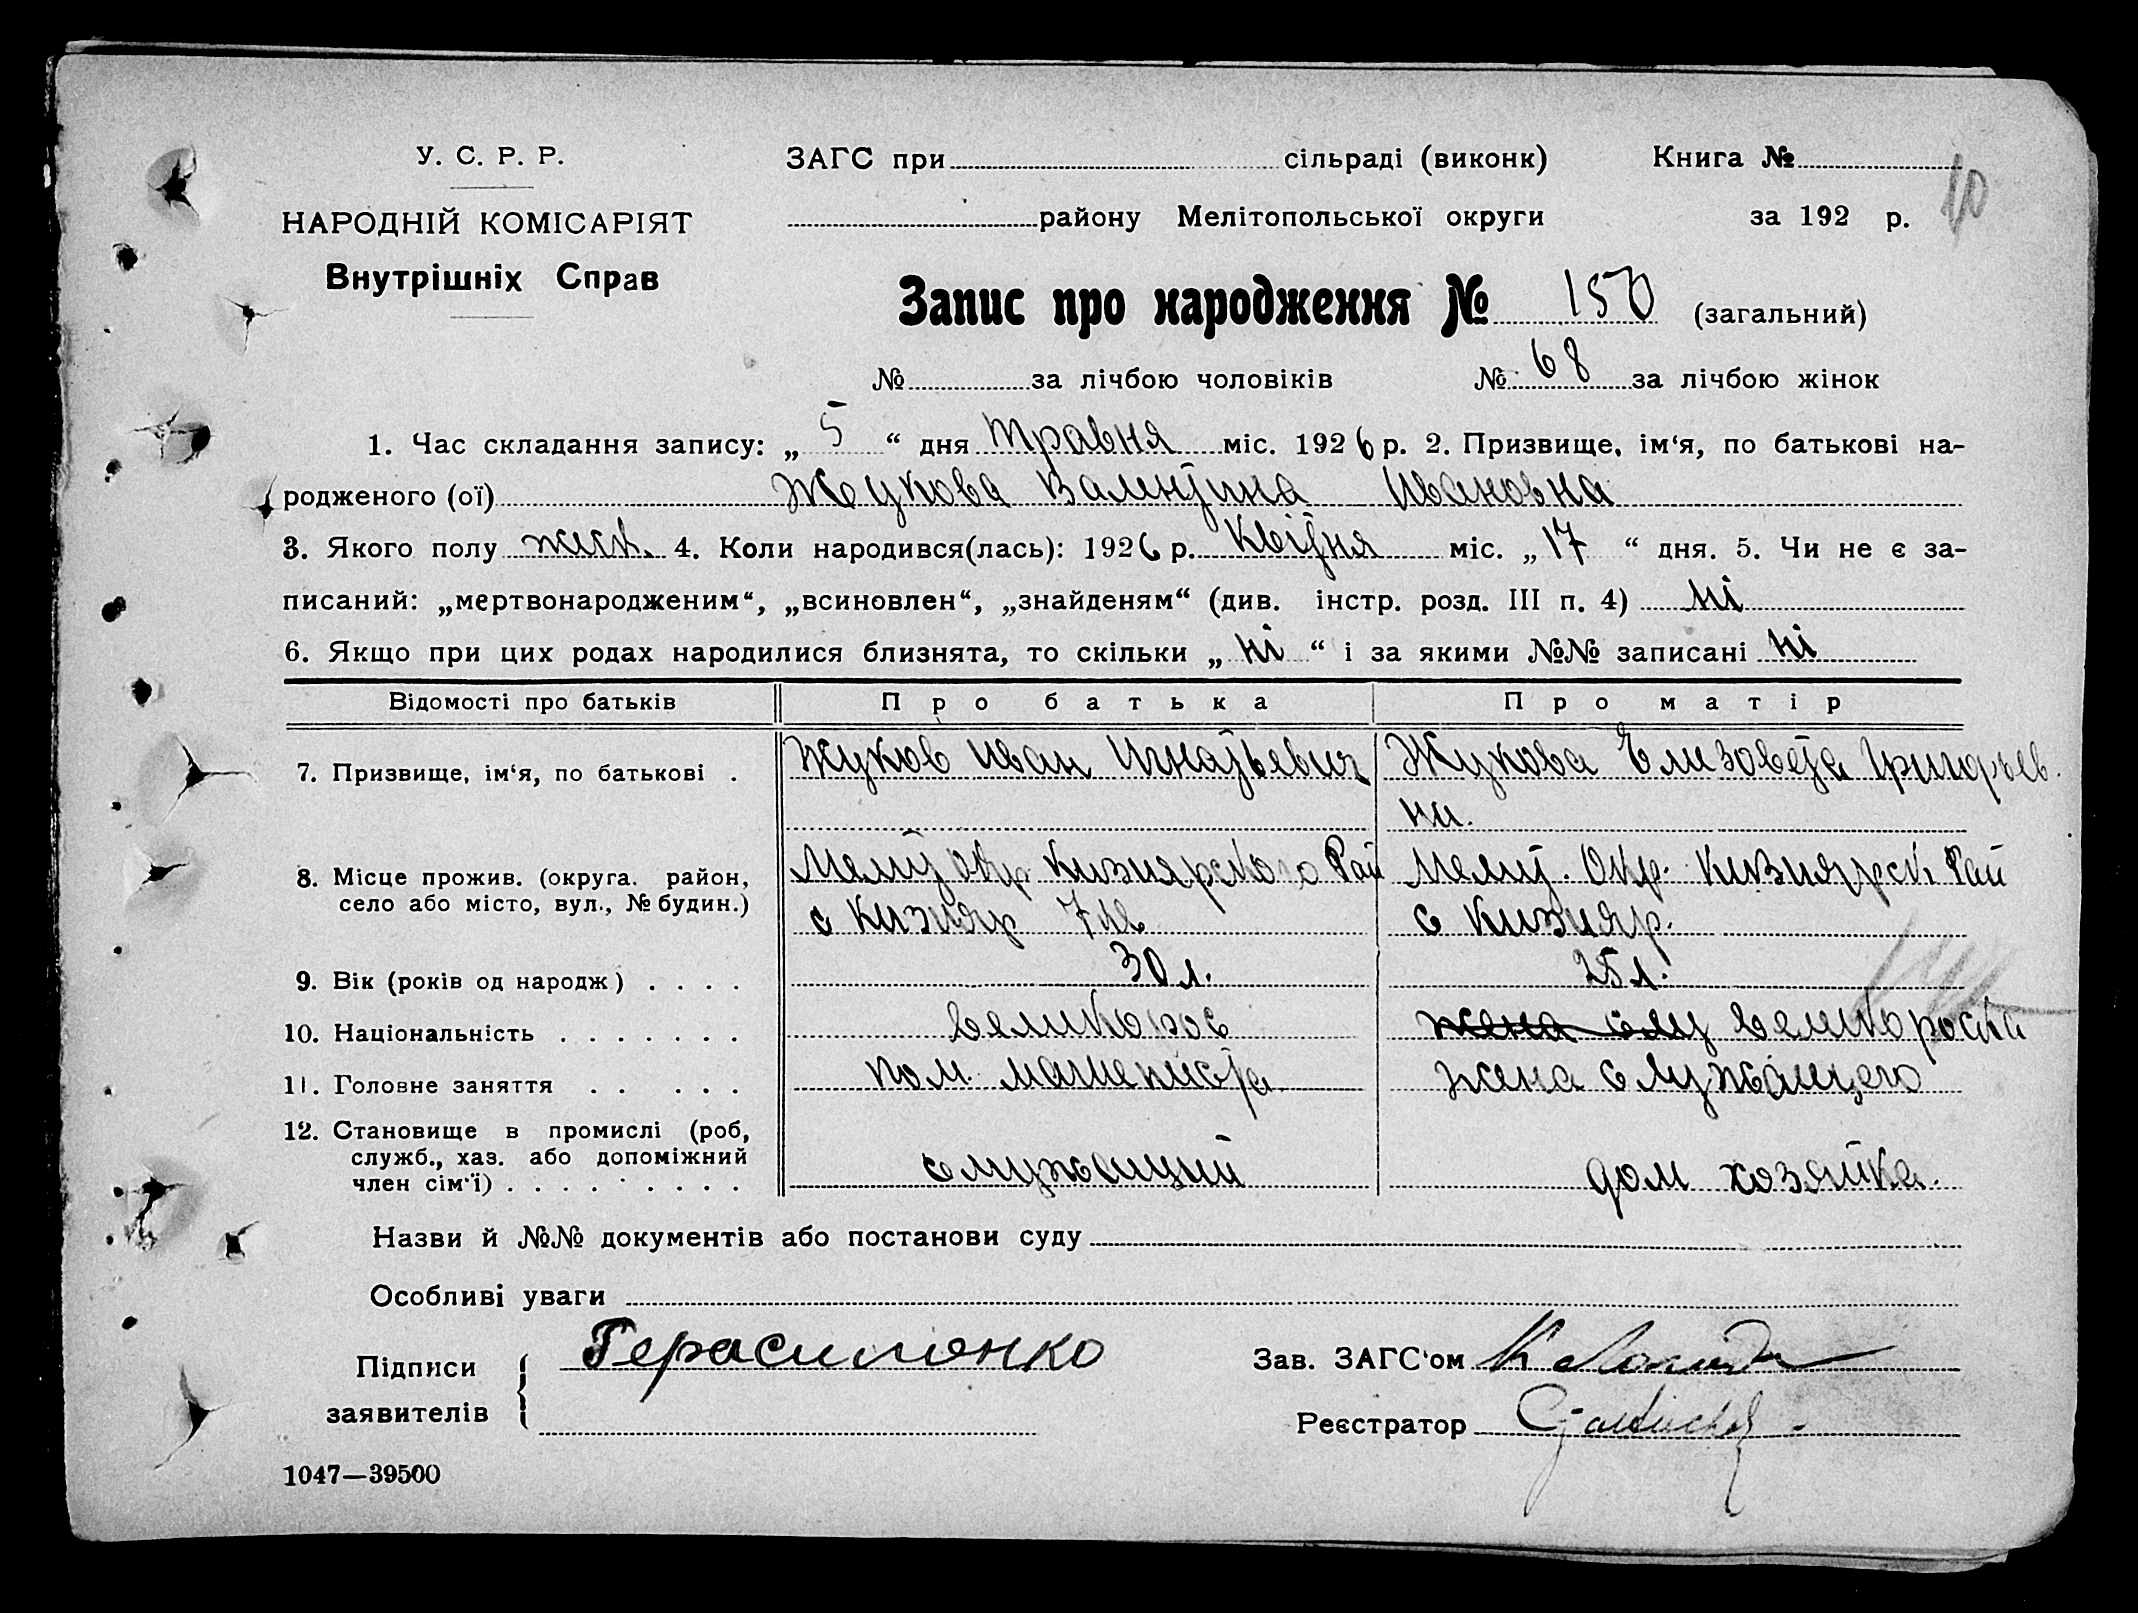 У. С. Р. Р.
НАРОДНІЙ КОМІСАРІЯТ
Внутрішніх Справ
ЗАГС при сільраді (виконк) Книга №
району Мелітопольської округи за 192 р.
10
Запис про народження № 150 (загальний)
№ за лічбою чоловіків № 68 за лічбою жінок
1. Час складання запису: „ 5 “ дня травня міс. 1926 р. 2. Призвище, ім‘я, по батькові на-
родженого (ої) Жукова Валентина Ивановна
3. Якого полу жіноч. 4. Коли народився(лась): 1926 р. квітня міс. „ 17 “ дня. 5. Чи не є за-
писаний: „мертвонародженим“, „всиновлен“, „знайденям“ (див. інстр. розд. III п. 4) ні
6. Якщо при цих родах народилися близнята, то скільки „ ні “ і за якими №№ записані ні
Відомості про батьків Про батька Про матір
7. Призвище, ім‘я, по батькові . Жуков Иван Игнатьевич Жукова Елизовета Григорьев
на.
8. Місце прожив. (округа. район, Мелит окр Кизиярского Рай Мелит. Окр. Кизиярск. Рай
село або місто, вул., № будин.) с Кизияр с Кизияр.
9. Вік (років од народж) . . . . 30 л. 25 л.
10. Національність . . . . . . . великорос жена служ великороска
11. Головне заняття . . . . . пом. машениста жена служащего
12. Становище в промислі (роб,
служб., хаз. або допоміжний
член сім‘ї) . . . . . . . . . служащий дом хозяйка.
Назви й №№ документів або постанови суду
Особливі уваги
Підписи Герасименко Зав. ЗАГС‘ом
заявителів Реєстратор
1047—39500